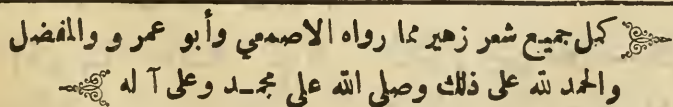 كمل جميع شعر زهير مما رواه الاصمعي وأبو عمر و والمفضل
والحمد لله على ذلك وصلى الله على محمد وعلى آ له